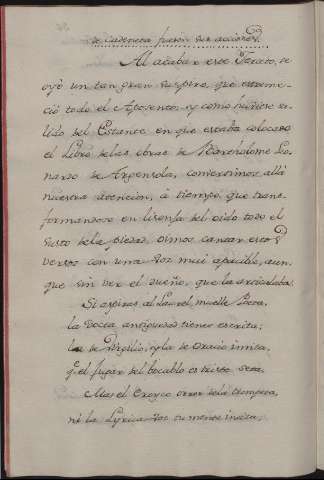 de Cadeneta fueron sus acciones.
Al acabar este Terceto, se
oyò un tan gran suspiro, que estreme-
ciò todo el Aposento, y como huviese sa-
lido del Estante en que estaba colocado
el Libro de las obras de Bartholome Leo-
nardo de Argensola, convertimos allà
nuestra atencion, à tiempo, que trans-
formandose en lisonja del oido todo el
susto de la piedad, oimos cantar estos
versos con una voz mui apacible, aun-
que sin ver el dueño, que la articulaba.
Si aspiras al Laurel, muelle Poeta,
la docta antiguedad tienes escrita;
la de Virgilio, y la de Oracio imita,
q.e el jugar del bocablo es triste seta.
Mas el Eroyco orror de la trompeta,
ni la Lyrica voz tu mente incita,